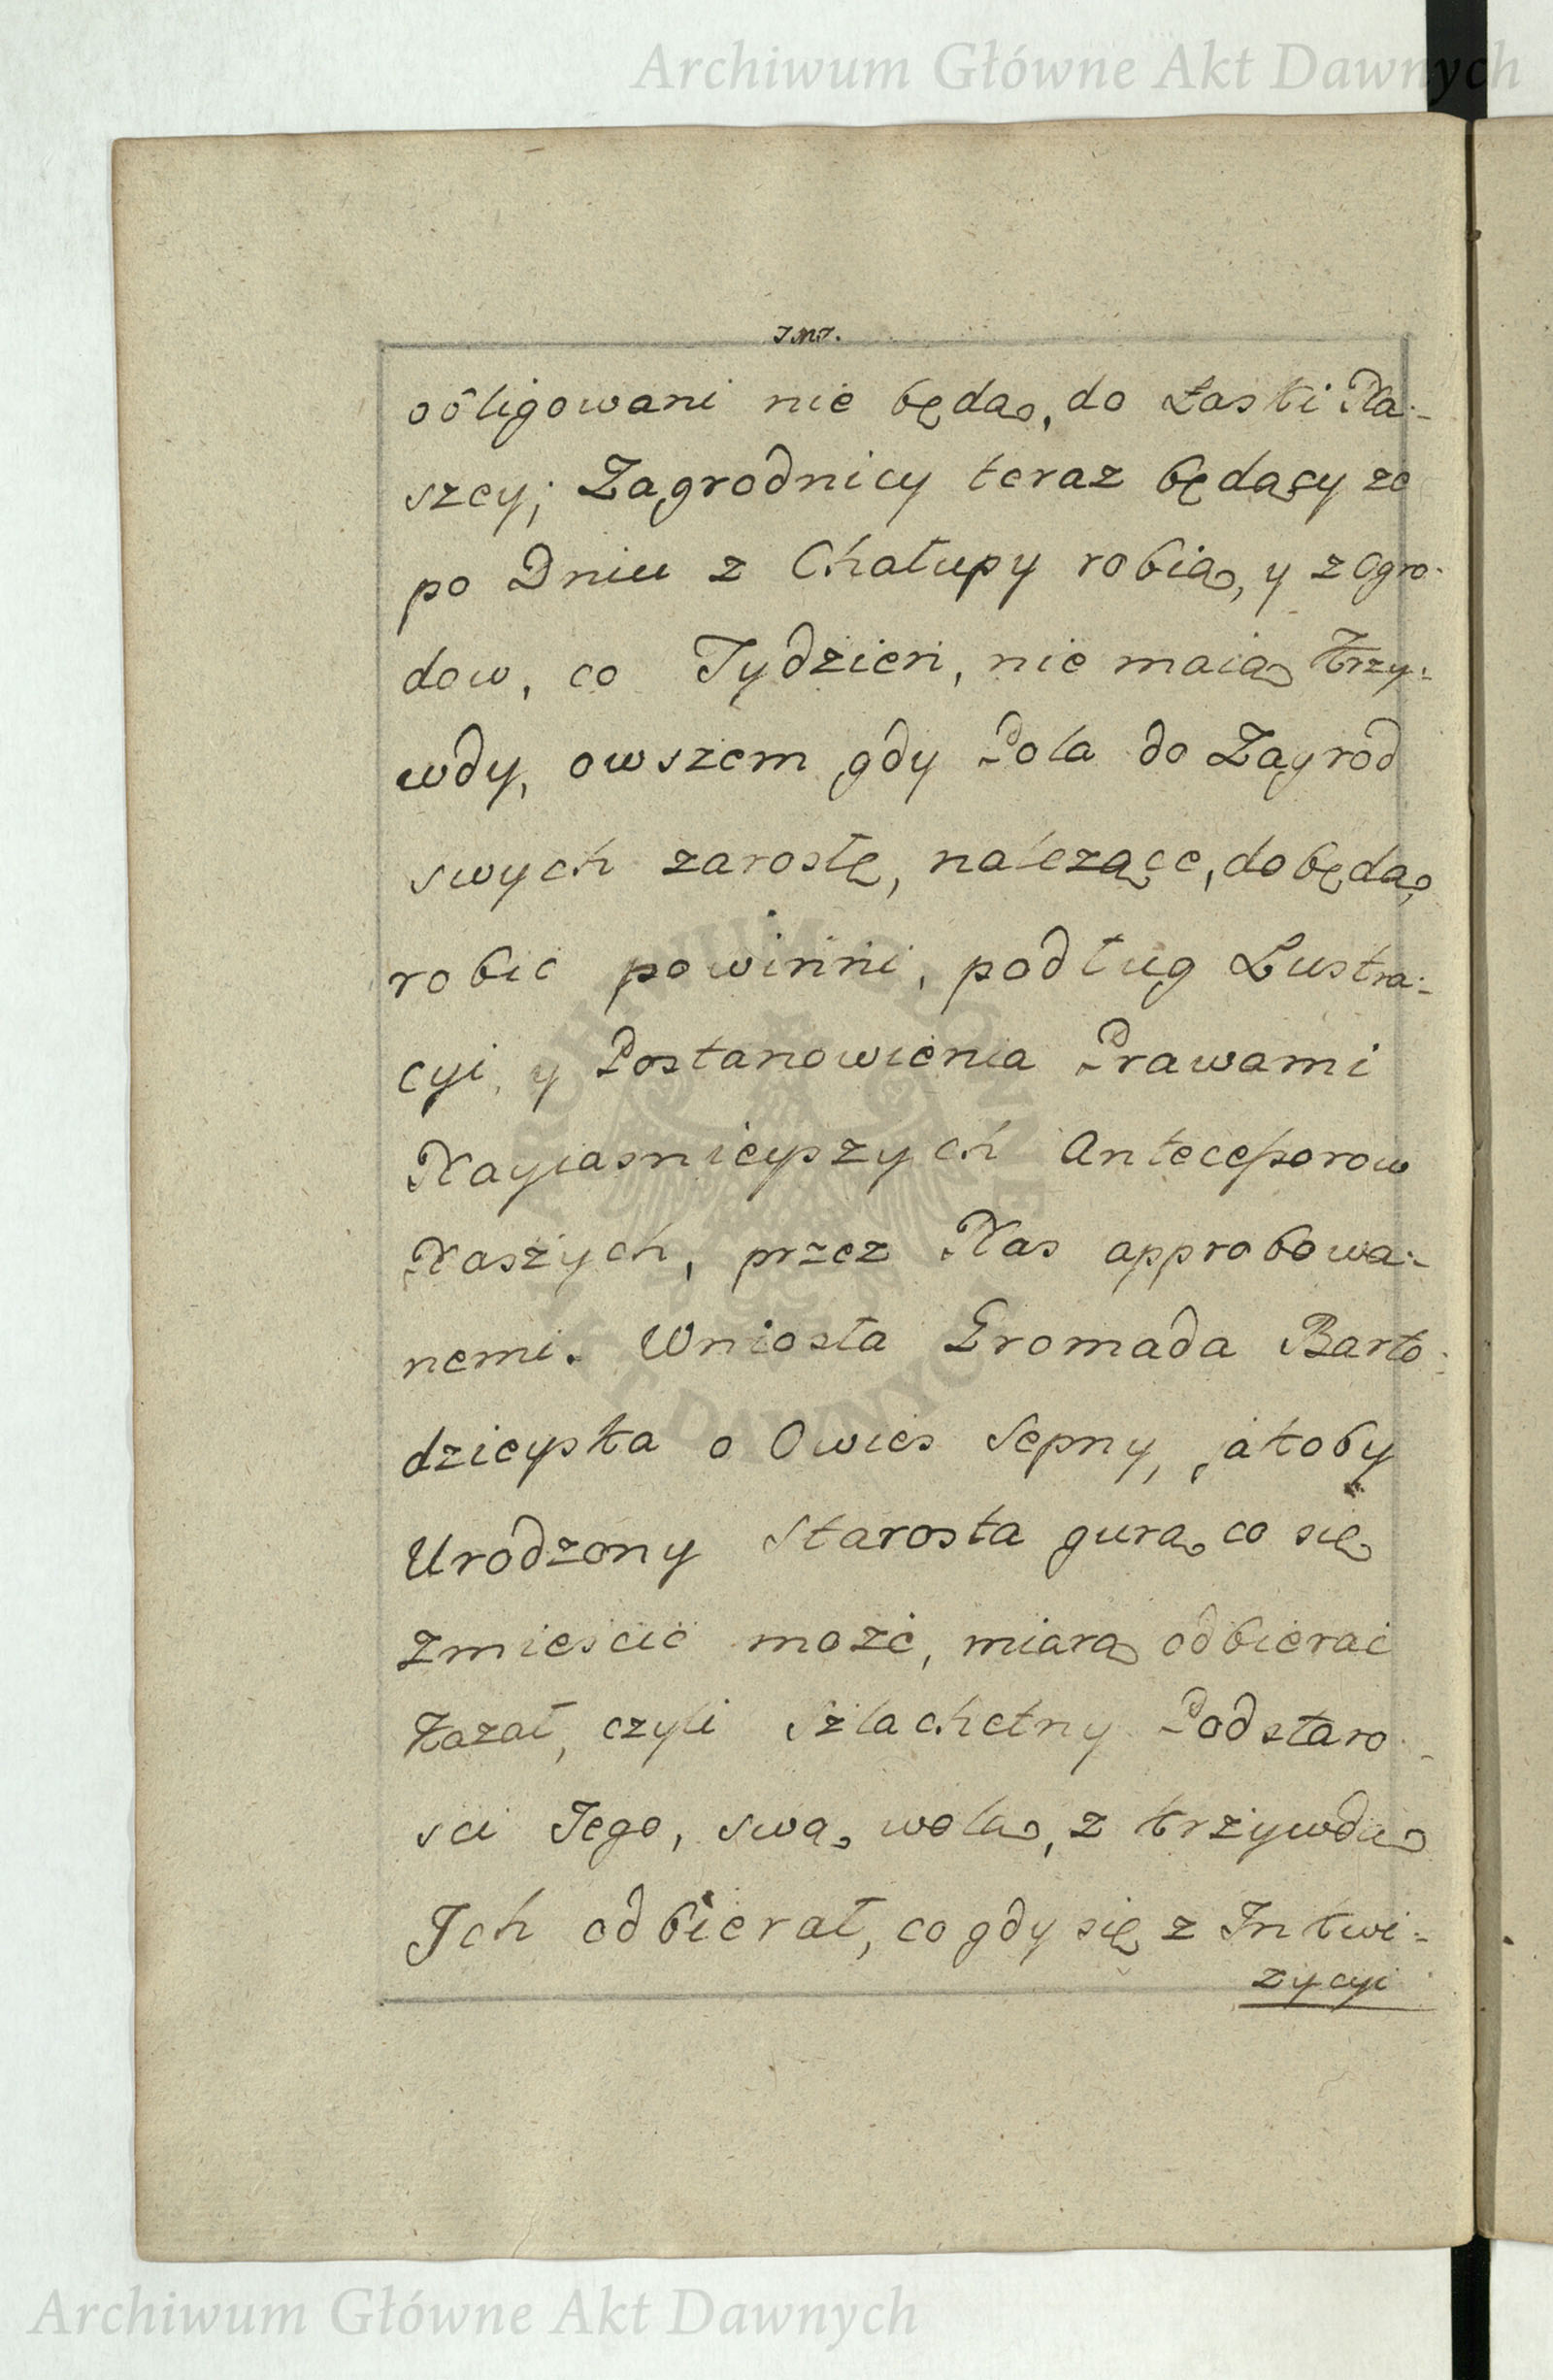 Archiwum Główne Akt Dawnych
JMJ.
obligowani nie będą, do Łaski Na-
szey; Zagrodnicy teraz będący że
po Dniu z Chałupy robią, y z Ogro-
dow, co Tydzień, nie maią krzy-
wdy, owszem gdy Pola do Zagrod
swych zarosłę, nalezące, dobędą,
robić powinni, podług Lustra-
cyi, y Postanowienia Prawami
Nayiasnieyszych Antecessorow
Naszych, przez Nas approbowa-
nemi. Wniosła Gromada Barto-
dzieyska o Owies Sepny, jakoby
Urodzony Starosta gurą, co się
zmieścić może, miarą odbierać
kazał, czyli Szlachetny Podstaro-
sci Jego, swą wolą, z krzywdą
Ich odbierał, co gdy się z Inkwi-
zycyi
ARCHIWUM GŁÓWNE
AKT DAWNYCH
Archiwum Główne Akt Dawnych